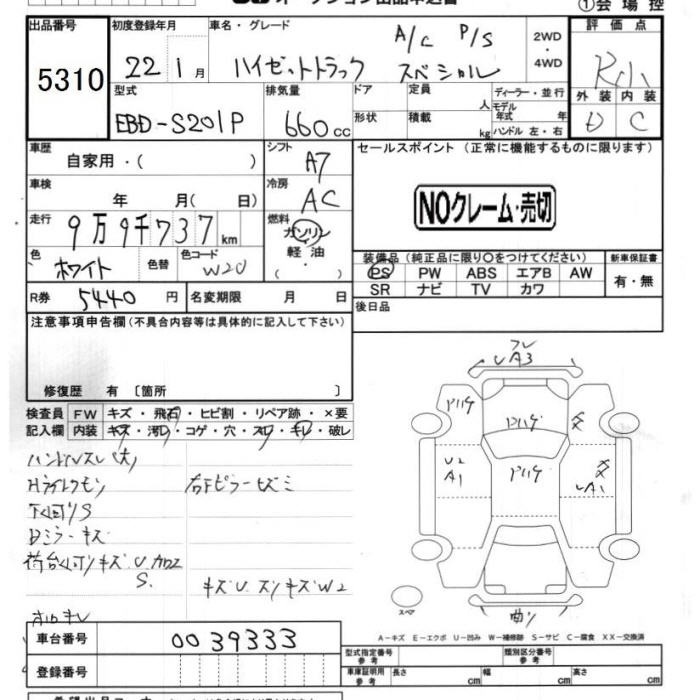 オークション出品申込書
①会場控
出品番号 5310
初度登録年月 22 1月
車名・グレード ハイゼットトラック スペシャル A/C P/S
2WD・4WD
評価点
外装 内装 D C
型式 EBD-S201P
排気量 660cc
ドア 形状
定員 人
積載 kg
ディーラー・並行
モデル年式 年
ハンドル 左・右
車歴 自家用・( )
シフト A7
セールスポイント(正常に機能するものに限ります)
車検 年 月( 日)
冷房 AC
NOクレーム・売切
走行 9万9千737km
燃料 ガソリン 軽油 ・( )
色 ホワイト 色替 色コード W20
装備品(純正品に限り〇をつけてください)
新車保証書
PS PW ABS エアB AW
有・無
SR ナビ TV カワ
R券 5440円 名変期限 月 日
後日品
注意事項申告欄(不具合内容等は具体的に記入して下さい)
修復歴 有〔箇所 〕
検査員記入欄
FW キズ・飛石・ヒビ割・リペア跡・×要
内装 キズ・汚レ・コゲ・穴・スレ・キレ・破レ
ハンドルスレ(大)
Hライトクモリ
右Fピラーキズミ
下回りS
Dミラーキズ
荷台回りキズU カロスS.
キズU スリキズW2
ホロキレ
フレ
UA3
U2
A1
曲り
スペア
A-キズ E-エクボ U-凹み W-補修跡 S-サビ C-腐食 XX-交換済
車台番号 0039333
登録番号
型式指定番号 参考
類別区分番号 参考
車庫証明用 参考 長さ cm 幅 cm 高さ cm